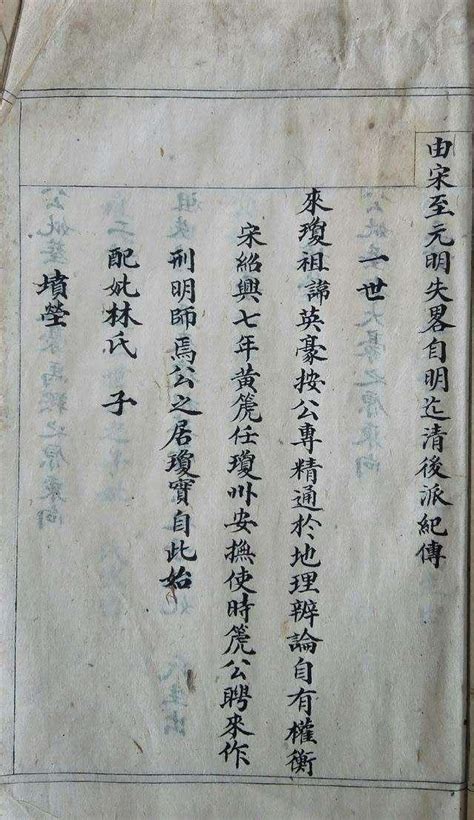 由宋至元明失畧自明迄清後派紀傳
一世
來瓊祖諱英豪按公專精通於地理辨論自有權衡
宋紹興七年黃箎任瓊州安撫使時箎公聘來作
刑明師焉公之居瓊實自此始
配妣林氏 子
墳塋